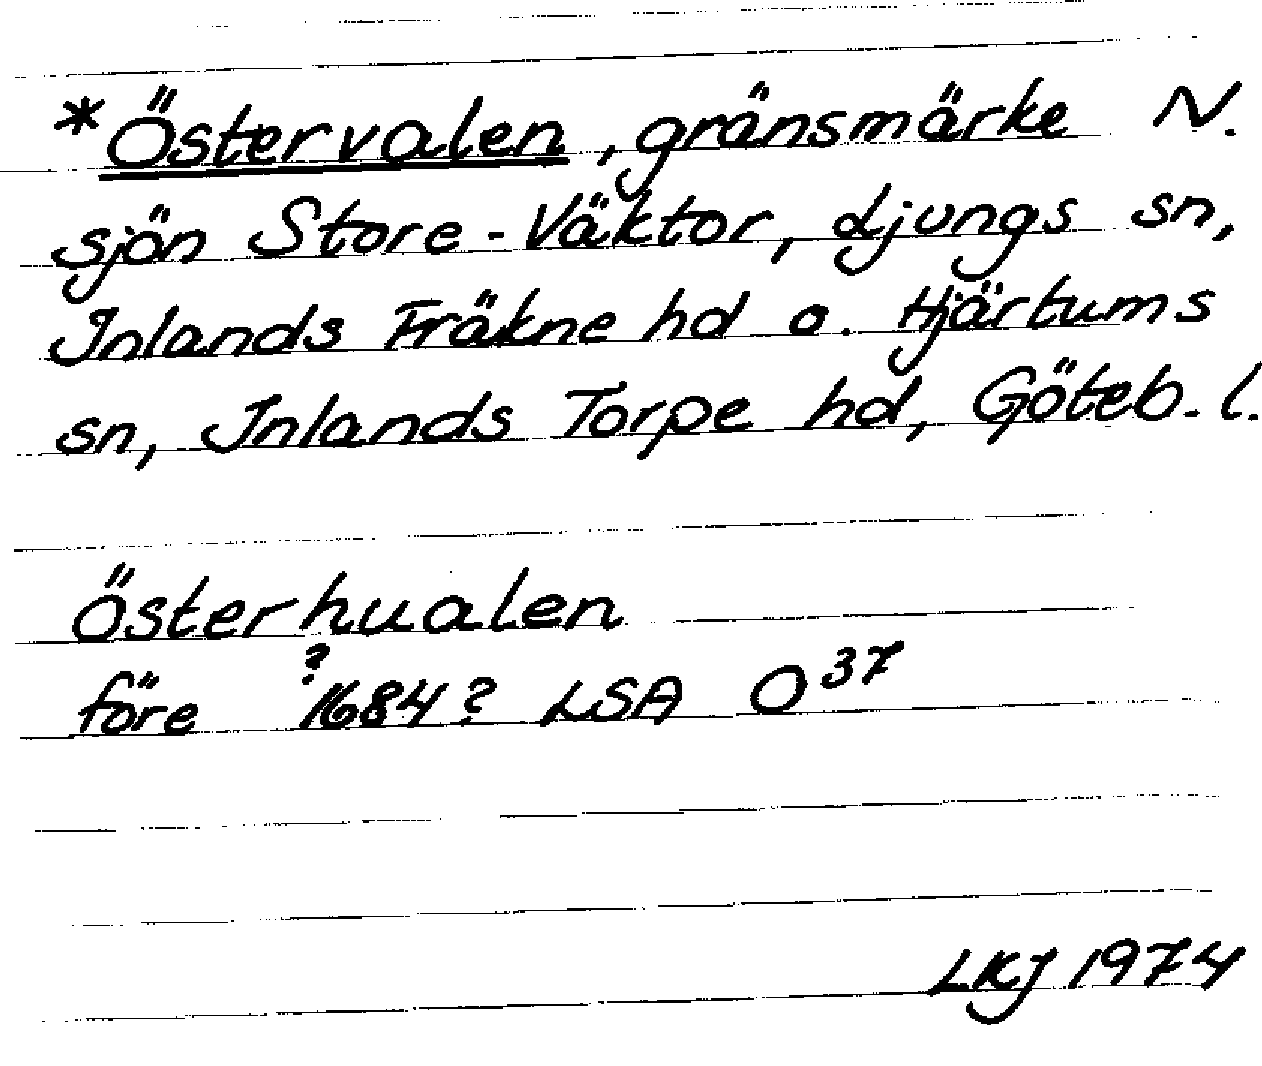 *Östervalen, gränsmärke N.
sjön Store-Väktor, Ljungs sn,
Inlands Fräkne hd o. Hjärtums
sn, Inlands Torpe hd, Göteb. l.
Österhualen
före ?1684? LSA O37
LKJ 1974